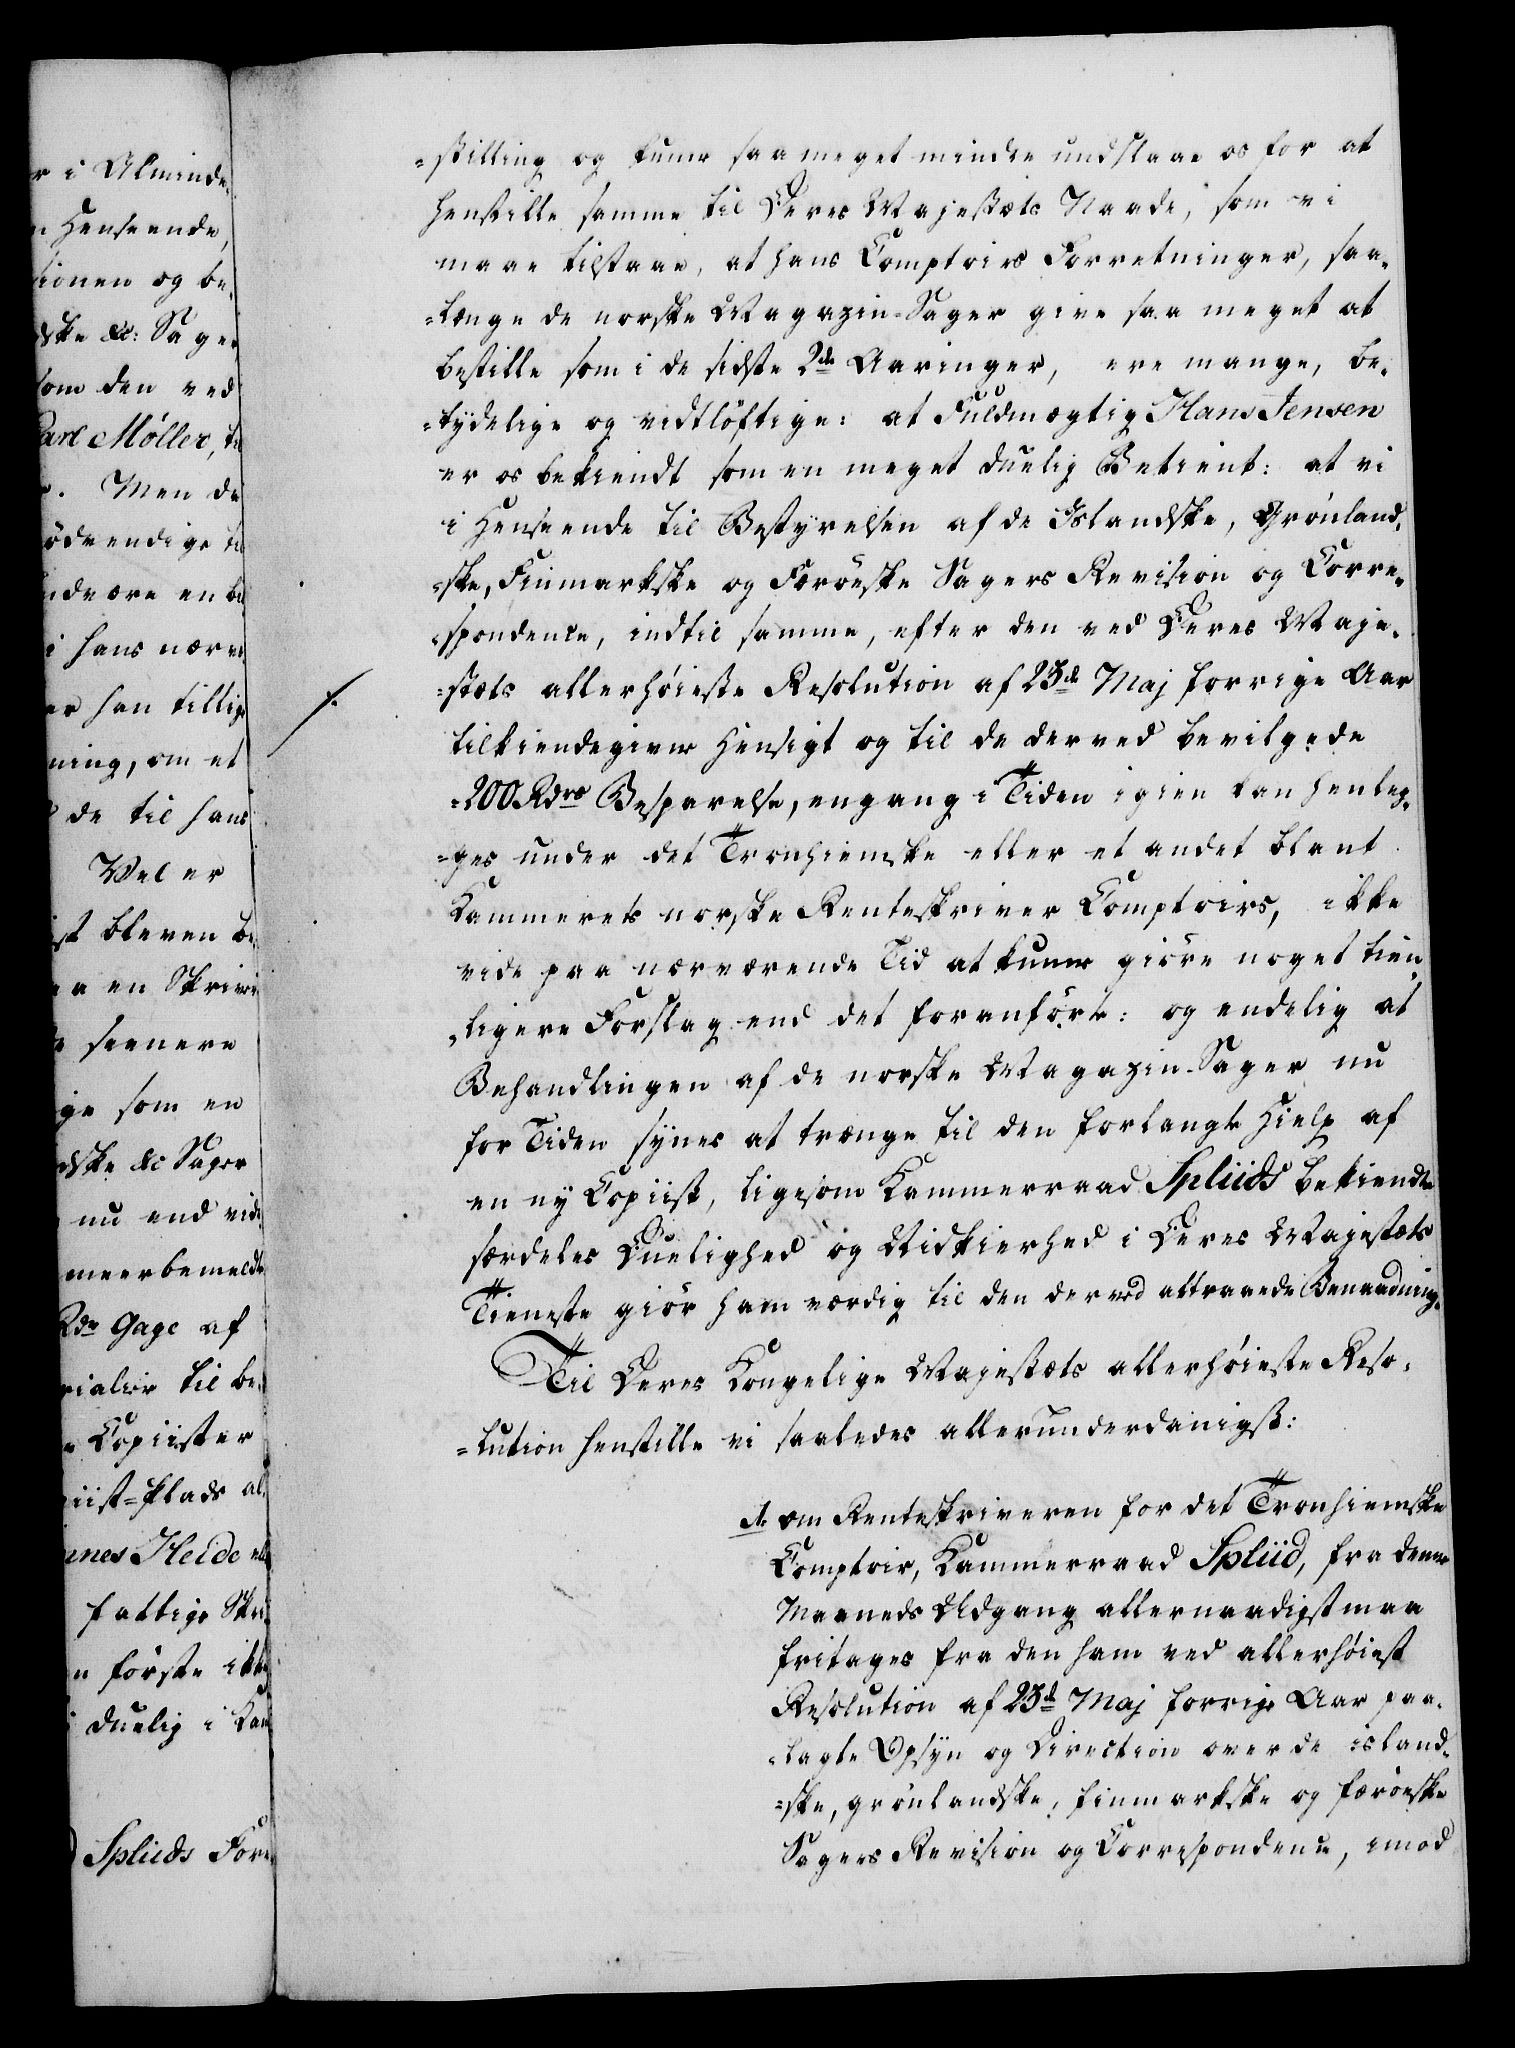 r i Alminde-
n Henseende,
tionen og be-
dske &c: Sager
som den ved
Carl Møller, ti
. Men da
ödvendige til
indvære en be
i hans nærv
er han tillige
ning, om et
de til hans
Vel er
ist bleven be
aa en Skriver
seenere
ge som en
dske &c Sager
nu end vide
meerbemeldte
Rdr Gage af
rialier til be-
Copiister
iist-Plads al
nnes Heide
fattige Skri
n förste ikke
duelig i Kam
Spliids For
=stilling og kunne saa meget mindre undslaae os for at
henstille samme til Deres Majestæts Naade, som vi
maae tilstaae, at hans Comptoirs Forretninger, saa-
=længe de norske Magazin-Sager give saa meget at
bestille som i de sidste 2de Aaringer, ere mange, be-
=tydelige og vidtlöftige: at Fuldmægtig Hans Jensen
er os bekiendt som en meget duelig Betient: at vi
i Henseende til Bestyrelsen af de Islandske, Grönland-
=ske, Finmarkske og Færöeske Sagers Revision og Corre-
=spondence, indtil samme, efter den ved Deres Maje-
=stæts allerhöieste Resolution af 23de Maj forrige Aar
tilkiendegivne Hensigt og til de derved bevilgede
=200 Rdrs Besparelse, engang i Tiden igien kan henleg-
=ges under det Tronhiemske eller et andet blant
Kammerets norske Renteskriver Comptoirs, ikke
vide paa nærværende Tid at kunne giöre noget tien-
=ligere Forslag end det foranförte: og endelig at
Behandlingen af de norske Magazin-Sager nu
for Tiden synes at trænge til den forlangte Hielp af
en ny Copiist, ligesom Kammerraad Spliids bekiendte
særdeles Duelighed og Nidkierhed i Deres Majestæts
Tieneste giör ham værdig til den derved attraaede Benaadning.
Til Deres Kongelige Majestæts allerhöieste Reso-
=lution henstille vi saaledes allerunderdanigst:
1. om Renteskriveren for det Tronhiemske
Comptoir, Kammerraad Spliid, fra denne
Maaneds Udgang allernaadigst maa
fritages fra den ham ved allerhöiest
Resolution af 23de Maj forrige Aar paa-
=lagte Opsyn og Direction over de island-
=ske, grönlandske, finmarkske og færöeske
Sagers Revision og Correspondence, imod